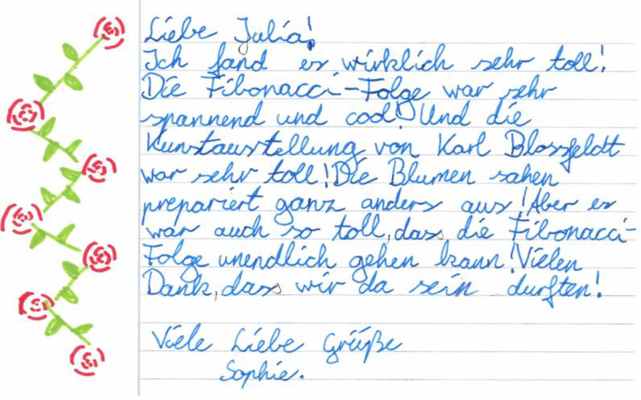 Liebe Julia!
Ich fand es wirklich sehr toll!
Die Fibonacci-Folge war sehr
spannend und cool! Und die
Kunstausstellung von Karl Blossfeldt
war sehr toll! Die Blumen sahen
prepariert ganz anders aus! Aber es
war auch so toll, das die Fibonacci-
Folge unendlich gehen kann! Vielen
Dank, dass wir da sein durften!
Viele Liebe Grüße
Sophie.